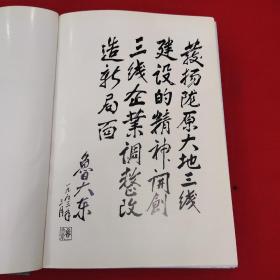 发扬陇原大地三线
建设的精神开创
三线企業调整改
造新局面
魯大东
一九九三年
二月